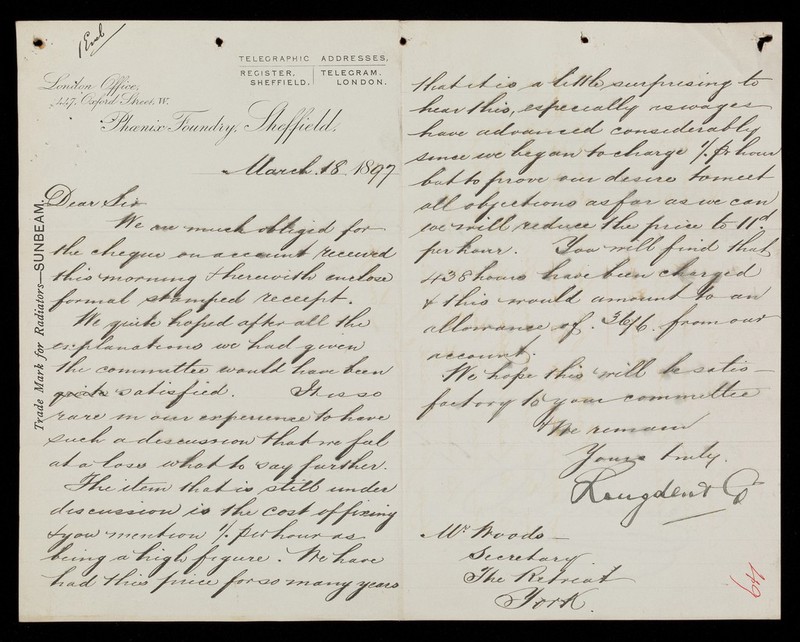 1 Encl
TELEGRAPHIC ADDRESSES,
REGISTER, SHEFFIELD.
TELEGRAM, LONDON.
London Office,
447, Oxford Street, W.
Phœnix Foundry, Sheffield,
March 18 1897
Trade Mark for Radiators—SUNBEAM.
Dear Sir
We are much obliged for
the cheque on account received
this morning & herewith enclose
formal stamped receipt.
We quite hoped after all the
explanations we had given
the committee would have been
quite satisfied. It is so
rare in our experience to have
such a discussion that we feel
at a loss what to say further.
The item that is still under
discussion is the cost of fixing
& you mention 1/- per hour as
being a high figure. We have
had this price for so many years
that it is a little surprising to
hear this, especially as wages
have advanced considerably
since we began to charge 1/- pr hour
but to prove our desire to meet
all objections as far as we can
we will reduce the price to 11d
per hour. You will find that
438 hours have been charged
& this would amount to an
allowance of 36/6 from our
account.
We hope this will be satis-
factory to your committee
& We remain
Yours truly.
Longden & Co
Mr Woods
Secretary
The Retreat
York.